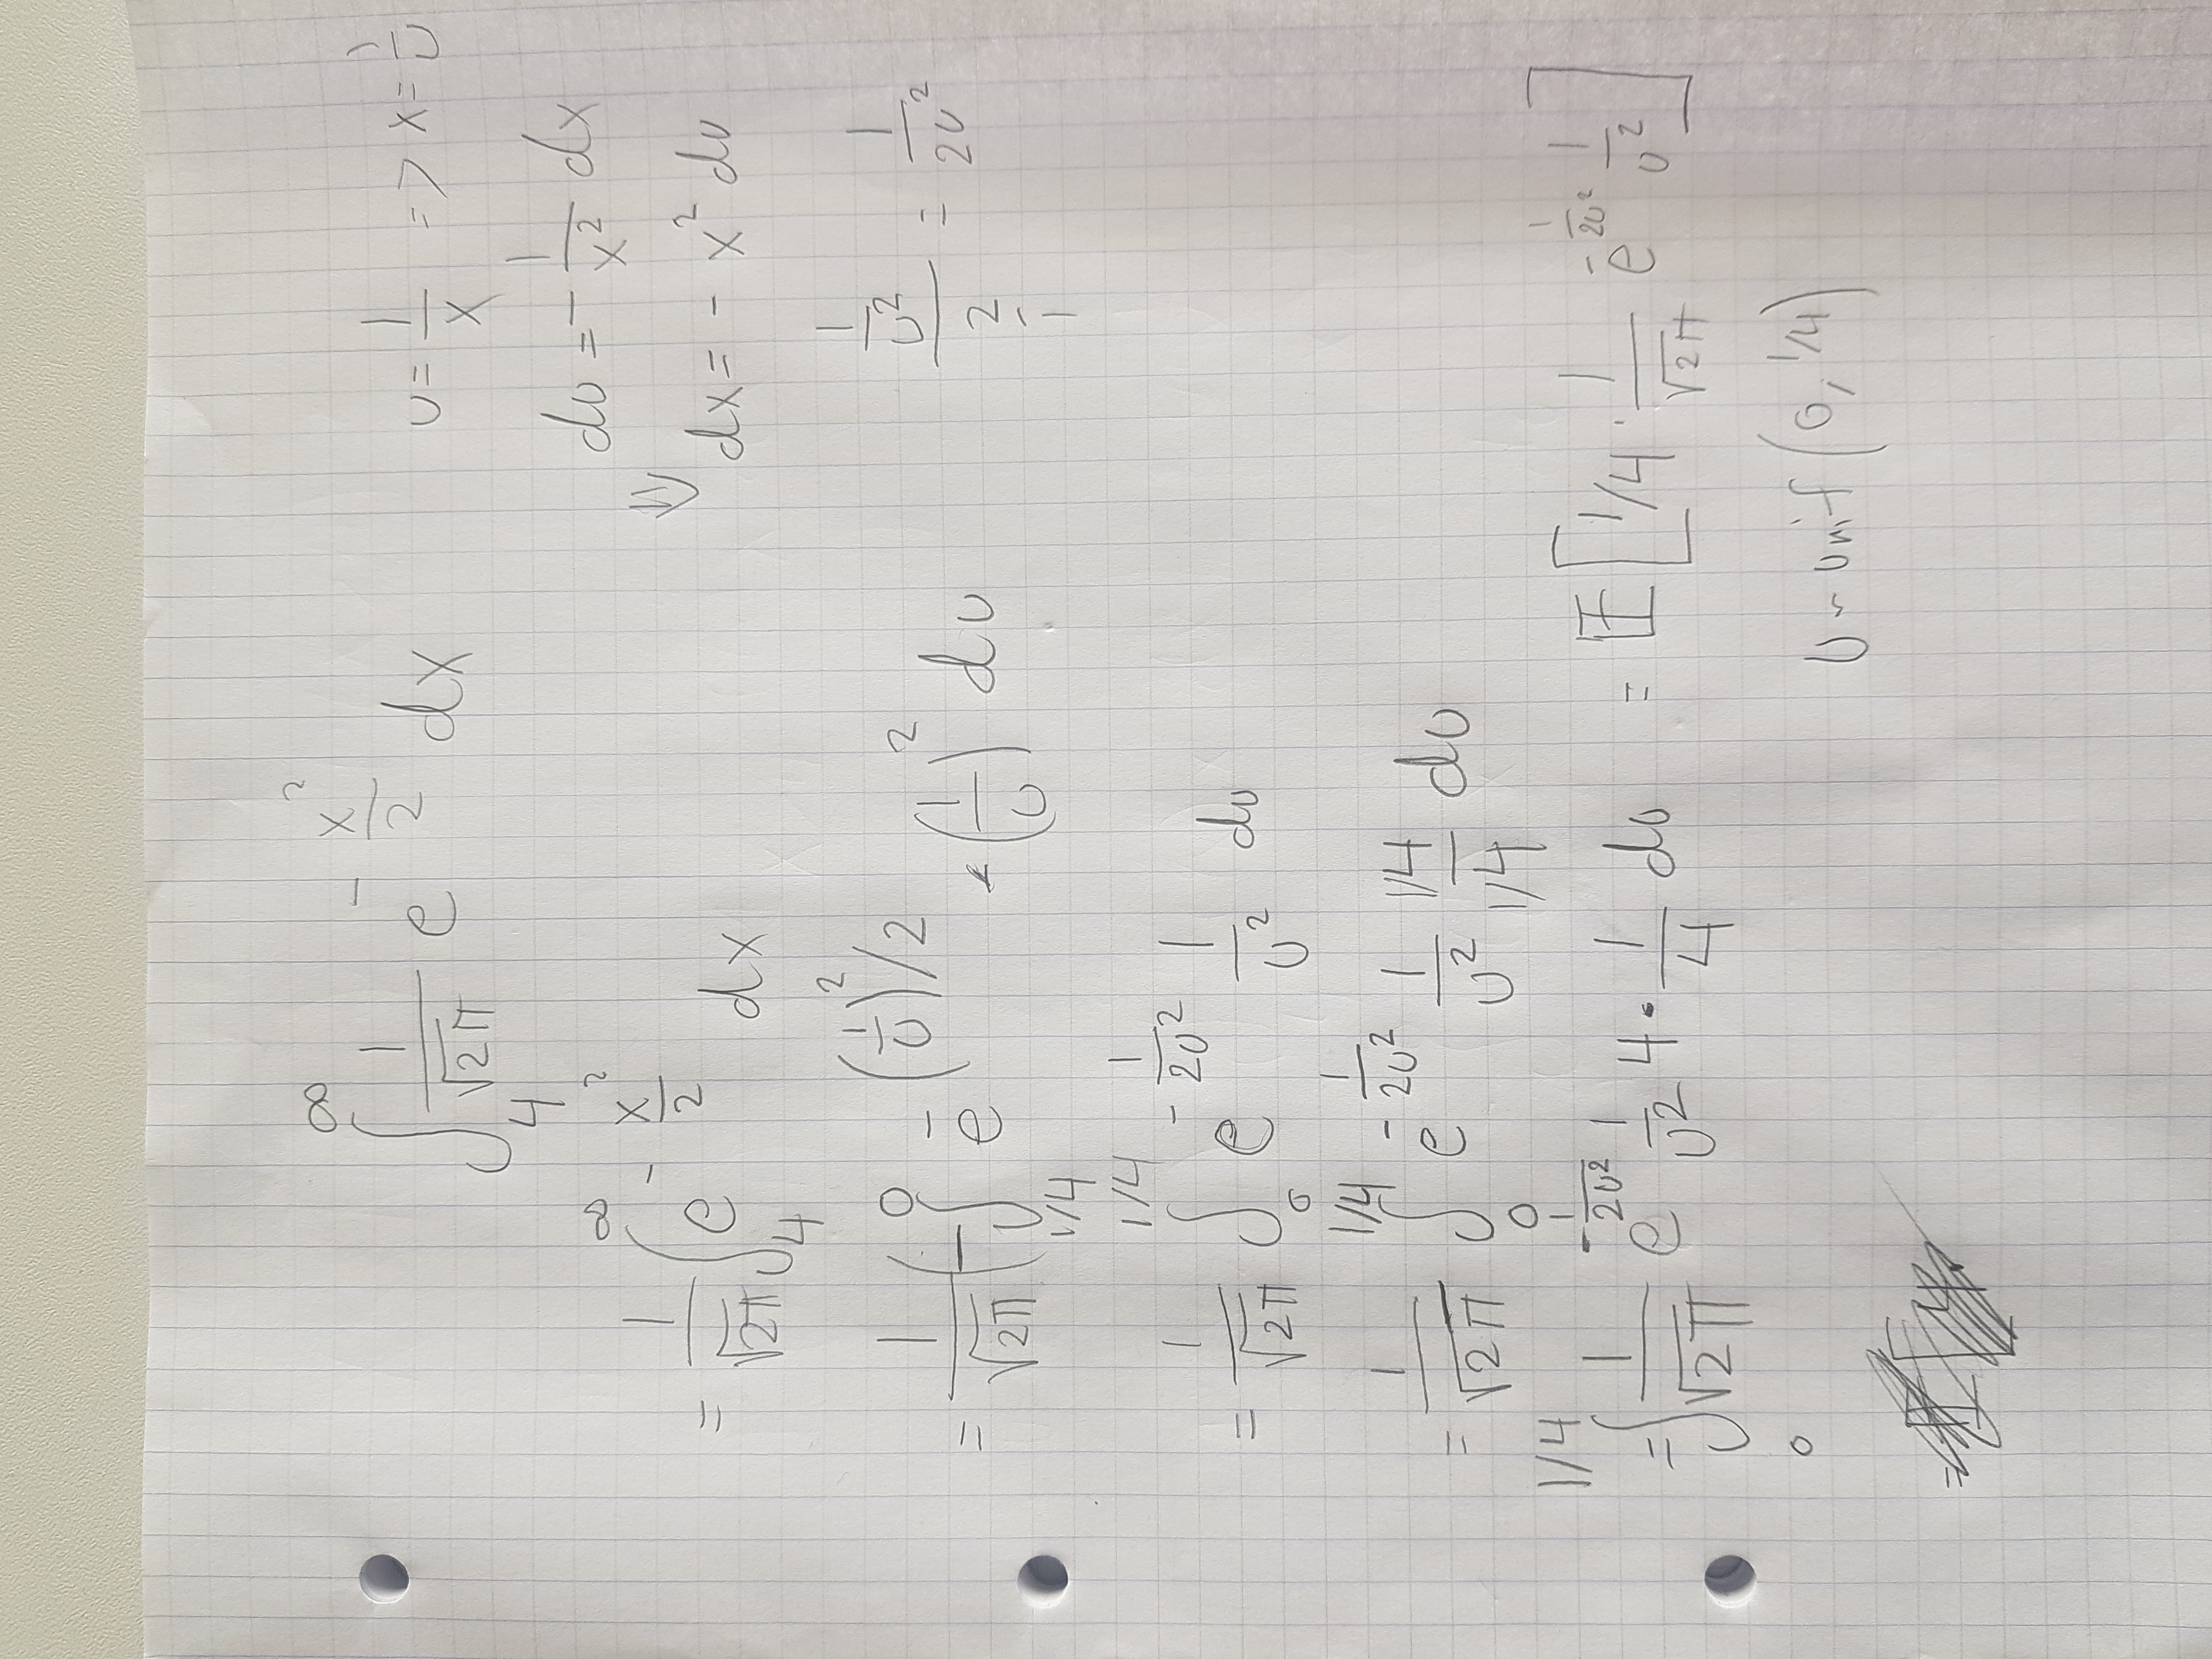 ∫_4^∞ 1/√2π e^(-x²/2) dx    u = 1/x => x = 1/u
du = - 1/x² dx
= 1/√2π ∫_4^∞ e^(-x²/2) dx    ⇓ dx = - x² du
= 1/√2π (-∫_(1/4)^0 e^(-(1/u)²/2) · (1/u)² du    (1/u²)/(2/1) = 1/(2u²)
= 1/√2π ∫_0^(1/4) e^(-1/(2u²)) 1/u² du
= 1/√2π ∫_0^(1/4) e^(-1/(2u²)) 1/u² (1/4)/(1/4) du
= ∫_0^(1/4) 1/√2π e^(-1/(2u²)) 1/u² 4 · 1/4 du = 𝔼[1/4 · 1/√2π e^(-1/(2u²)) 1/u²]
U ~ unif (0, 1/4)